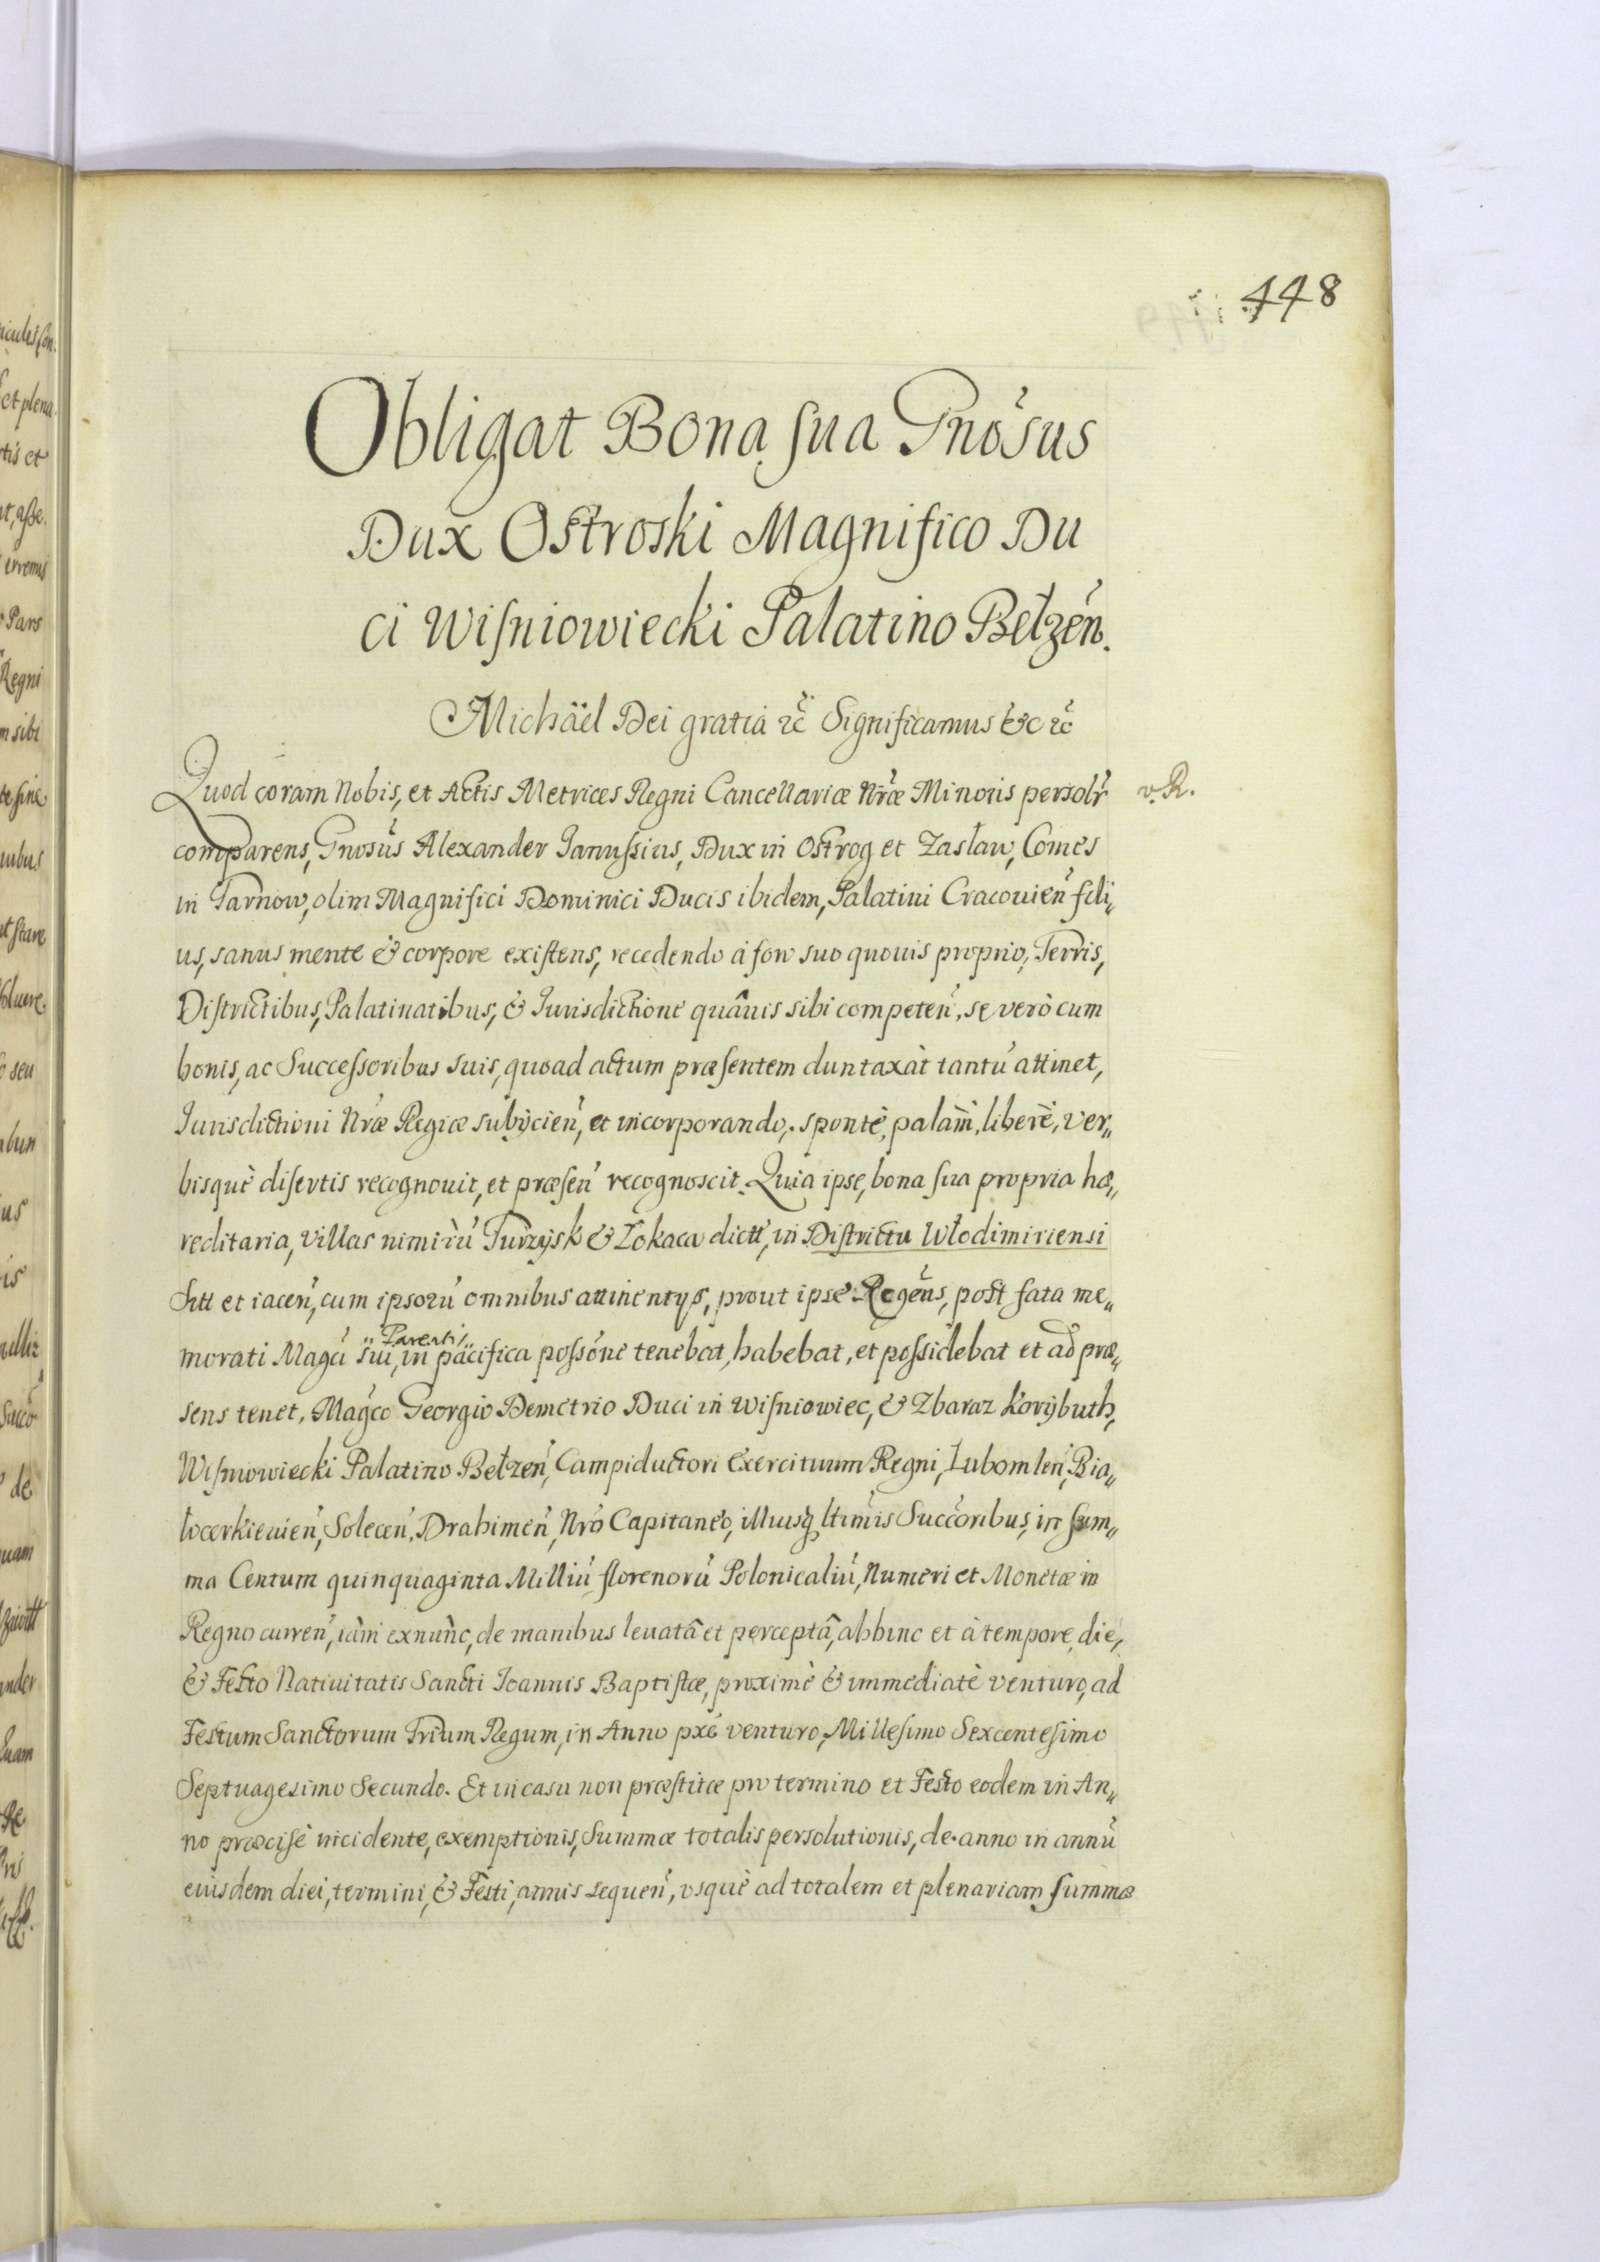 448
Obligat Bona sua Gnosus
Dux Ostroski Magnifico Du
ci Wisniowiecki Palatino Bełzen.
Michäel Dei gratia etc Significamus &c etc
Quod coram Nobis, et Actis Metrices Regni Cancellariæ Nræ Minoris persolr v. R.
comparens, Gnosus Alexander Janussius, Dux in Ostrog et Zasław, Comes
in Tarnow, olim Magnifici Dominici Ducis ibidem, Palatini Cracouien fili„
us, sanus mente & corpore existens, recedendo à foro suo quouis proprio, Terris,
Districtibus, Palatinatibus, & Iurisdictione quâuis sibi competen, se verò cum
bonis, ac Successoribus suis, quoad actum præsentem duntaxàt tantu attinet,
Iurisdictioni Nræ Regiæ subijcien, et incorporando, spontè, palàm, liberè, ver„
bisquè disertis recognouit, et præsen recognoscit. Quia ipse, bona sua propria hæ„
reditaria, villas nimirù Turzysk & Lokacz dictt, in Districtu Włodimiriensi
sitt et iacen, cum ipsoru omnibus attinentys, prout ipse Rcgens, post fata me„
morati Magci sui, Parentis in päcifica possone tenebat, habebat, et possidebat et ad præ„
sens tenet, Magco Georgio Demetrio Duci in Wisniowiec, & Zbaraz Korybuth,
Wisniowiecki Palatino Bełzen, Campiductori Exercituum Regni, Lubomlen, Bia„
łocerkieuien, Solecen, Drahimen, Nro Capitaneo, illiusq ltimis Succoribus, in sum„
ma Centum quinquaginta Milliu florenoru Polonicaliu, Numeri et Monetæ in
Regno curren, iàm exnunc, de manibus leuatâ et perceptâ, abhinc et à tempore, die,
& Festo Natiuitatis Sancti Ioannis Baptistæ, proximè & immediatè venturo, ad
Festum Sanctorum Trium Regum, in Anno pxe venturo, Millesimo Sexcentesimo
Septuagesimo Secundo. Et in casu non præstitæ pro termino et Festo eodem in An„
no præcisè incidente, exemptionis, Summæ totalis persolutionis, de anno in annu
eiusdem diei, termini, & Festi, annis sequen, vsquè ad totalem et plenariam summæ